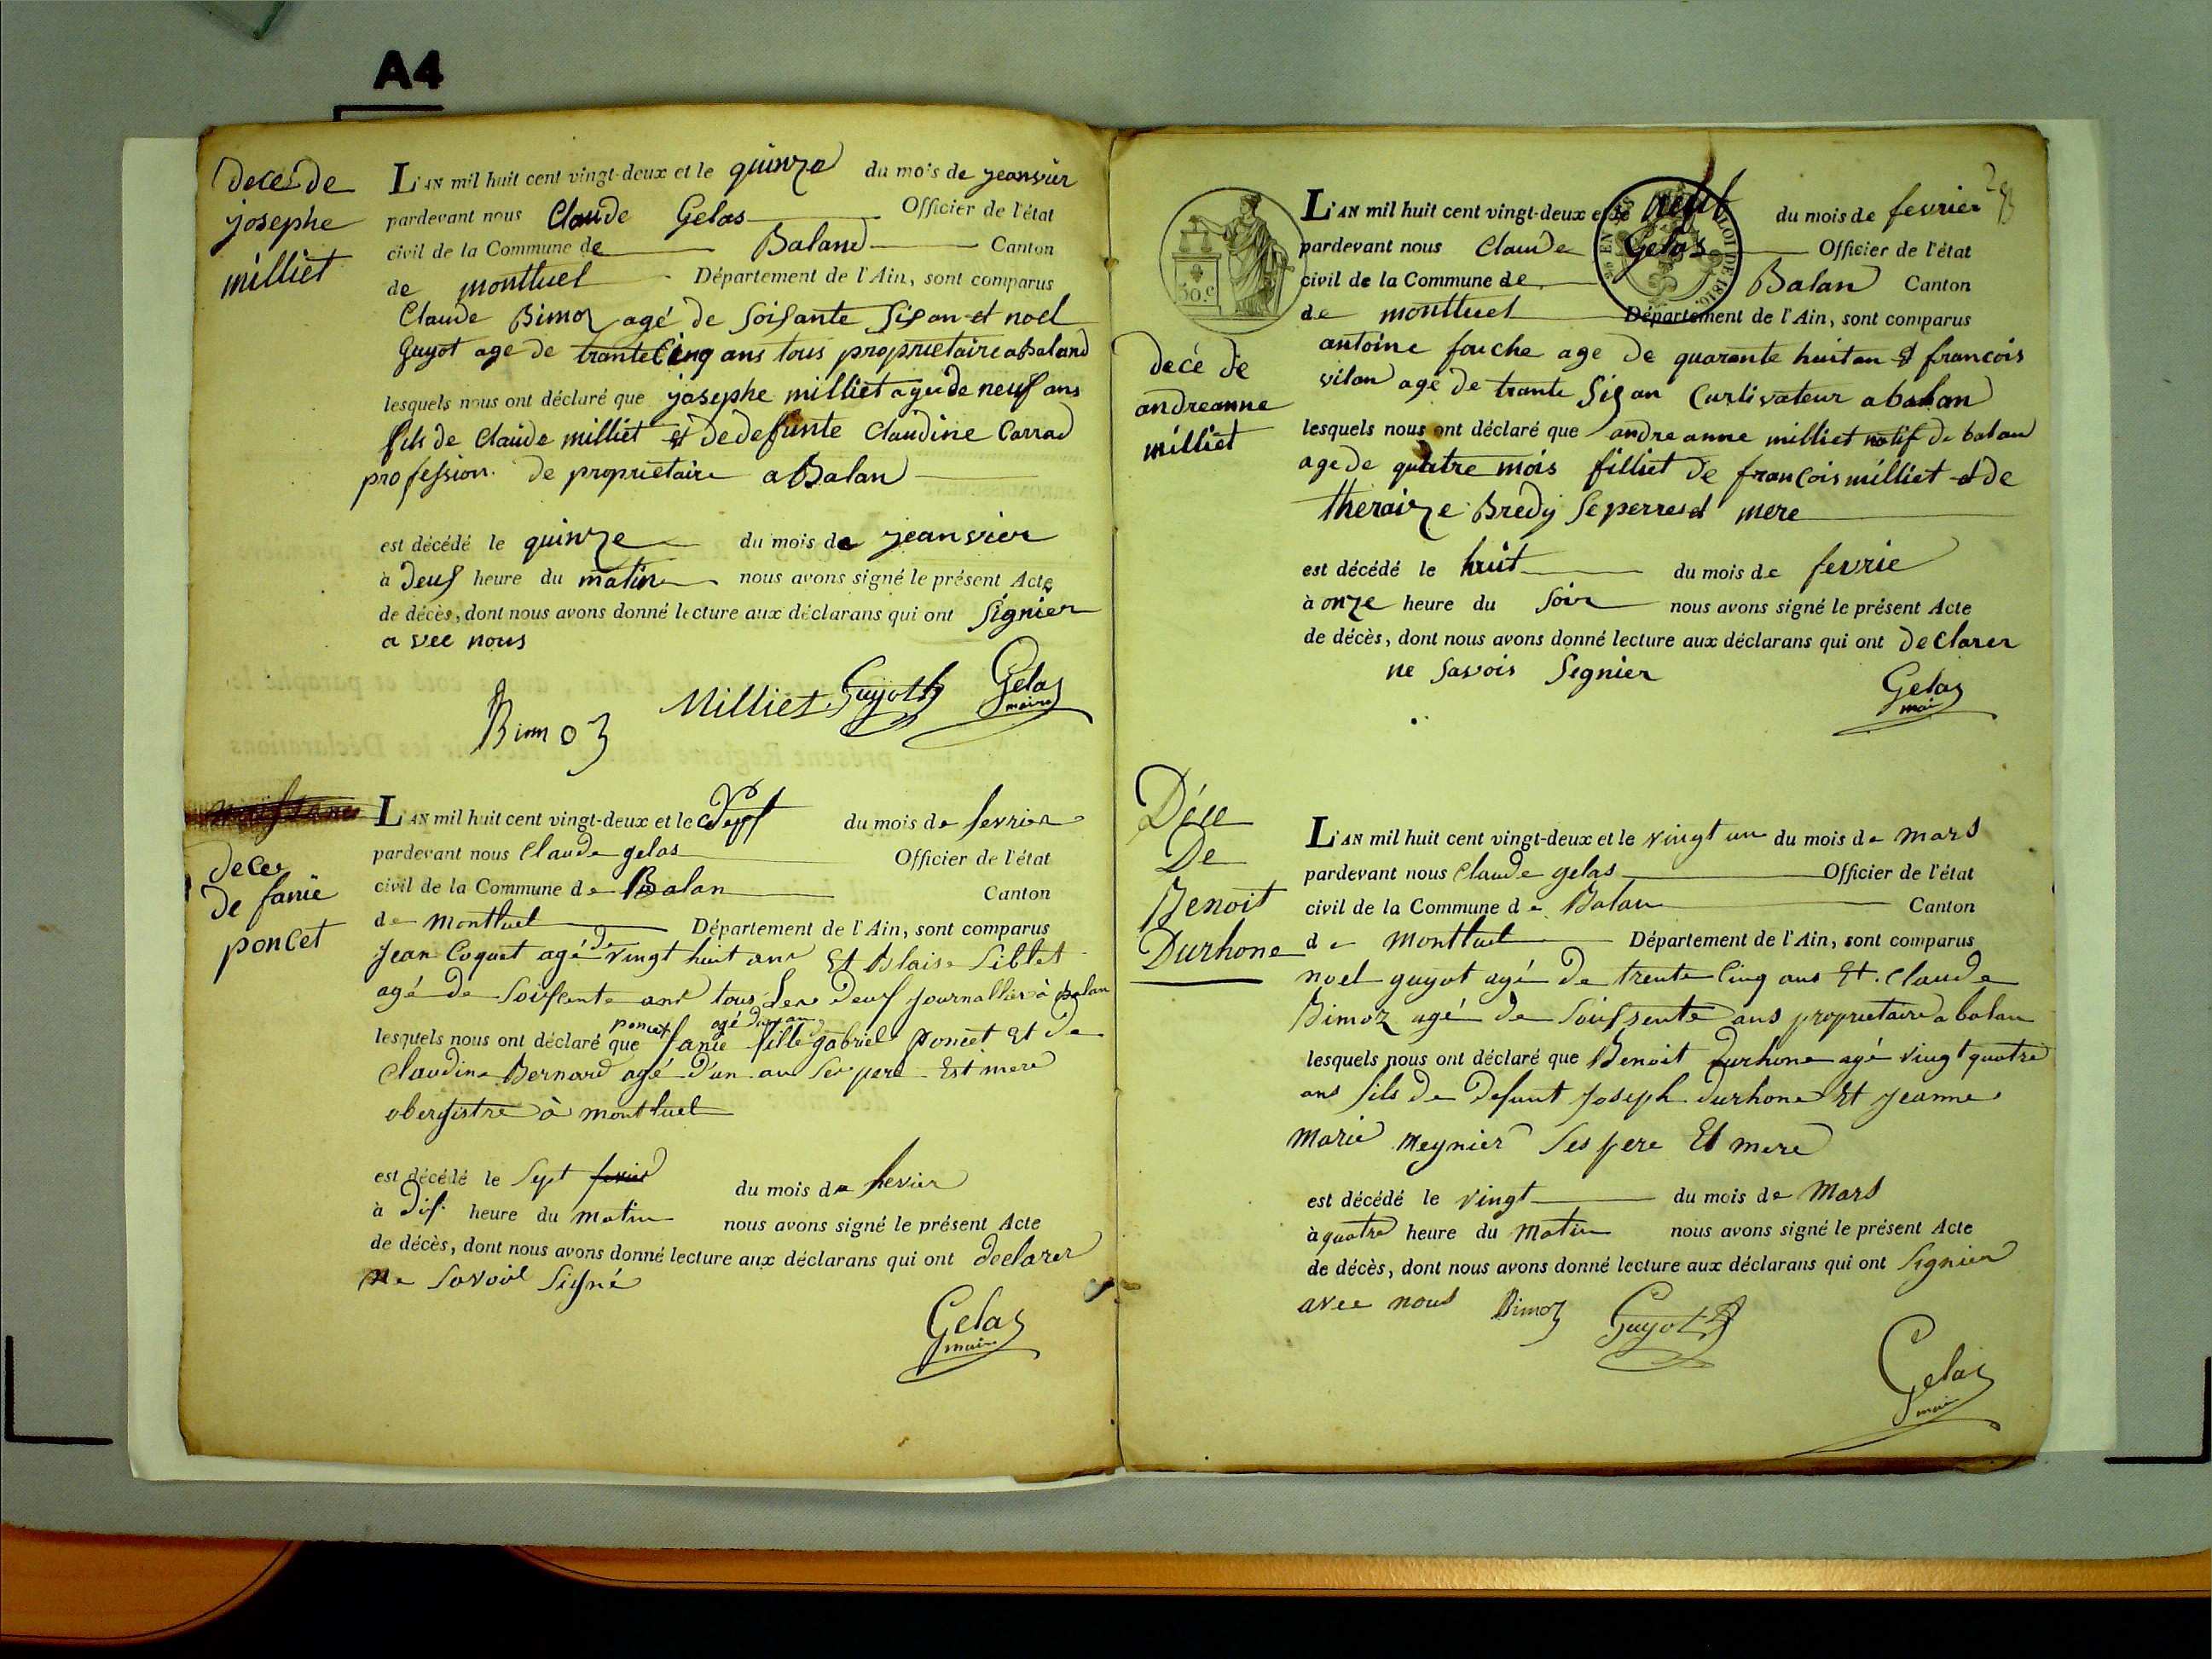 A4
decé de
josephe
milliet
L'AN mil huit cent vingt-deux et le quinze du mois de jeanvier
pardevant nous Claude Gelas Officier de l'état
civil de la Commune de Baland Canton
de montluel Département de l'Ain, sont comparus
Claude Bimoz agé de soisante sisan et noel
Guyot age de trante Cinq ans tous proprietaire a baland
lesquels nous ont déclaré que josephe milliet agé de neuf ans
fils de Claude milliet et de defunte Claudine Carrad
profession de proprietaire a Balan
est décédé le quinze du mois de jeanvier
à deus heure du matin nous avons signé le présent Acte
de décès, dont nous avons donné lecture aux déclarans qui ont signier
a vec nous
Bimoz Milliet Guyot Gelas
maire
dece
de fanie
poncet
L'AN mil huit cent vingt-deux et le sept du mois de fevrier
pardevant nous Claude gelas Officier de l'état
civil de la Commune de Balan Canton
de Montluel Département de l'Ain, sont comparus
Jean Coquet agé de vingt huit ans Et Blaise Siblet
agé de soissente ans tous Les deux journallier à Balan
poncet agé d'un an
lesquels nous ont déclaré que fanie fille gabriel Poncet Et de
Claudine Bernard agé d'un an ses pere Est mere
obergistre à montluel
est décédé le sept du mois de fevier
à dis heure du matin nous avons signé le présent Acte
de décès, dont nous avons donné lecture aux déclarans qui ont declarer
Ne savoir signé
Gelas
maire
30.c
EN SUS
LOI DE 1816.
decé de
andreanne
milliet
L'AN mil huit cent vingt-deux et le neuf du mois de fevrier
pardevant nous Claude Gelas Officier de l'état
civil de la Commune de Balan Canton
de montluel Département de l'Ain, sont comparus
antoine fouche age de quarante huit an et francois
vilan age de trante sis an Curlivateur a balan
lesquels nous ont déclaré que andre anne milliet natif de balan
age de quatre mois filliet de francois milliet et de
theraize Bredy se perres et mere
est décédé le huit du mois de fevrie
à onze heure du soir nous avons signé le présent Acte
de décès, dont nous avons donné lecture aux déclarans qui ont declarer
ne savois segnier
Gelas
mai
Déce
De
Benoit
Durhone
L'AN mil huit cent vingt-deux et le vingt un du mois de mars
pardevant nous Claude gelas Officier de l'état
civil de la Commune de Balan Canton
de Montluel Département de l'Ain, sont comparus
noel guyot agé de trente Cinq ans Et Claude
Bimoz agé de soissente ans proprietaire a balan
lesquels nous ont déclaré que Benoit durhone agé vingt quatre
ans fils de defunt Joseph durhone Et Jeanne
Marie Meynier Ses pere Et mere
est décédé le vingt du mois de Mars
à quatre heure du Matin nous avons signé le présent Acte
de décès, dont nous avons donné lecture aux déclarans qui ont signier
avec nous Bimoz Guyot
Gelas
maire